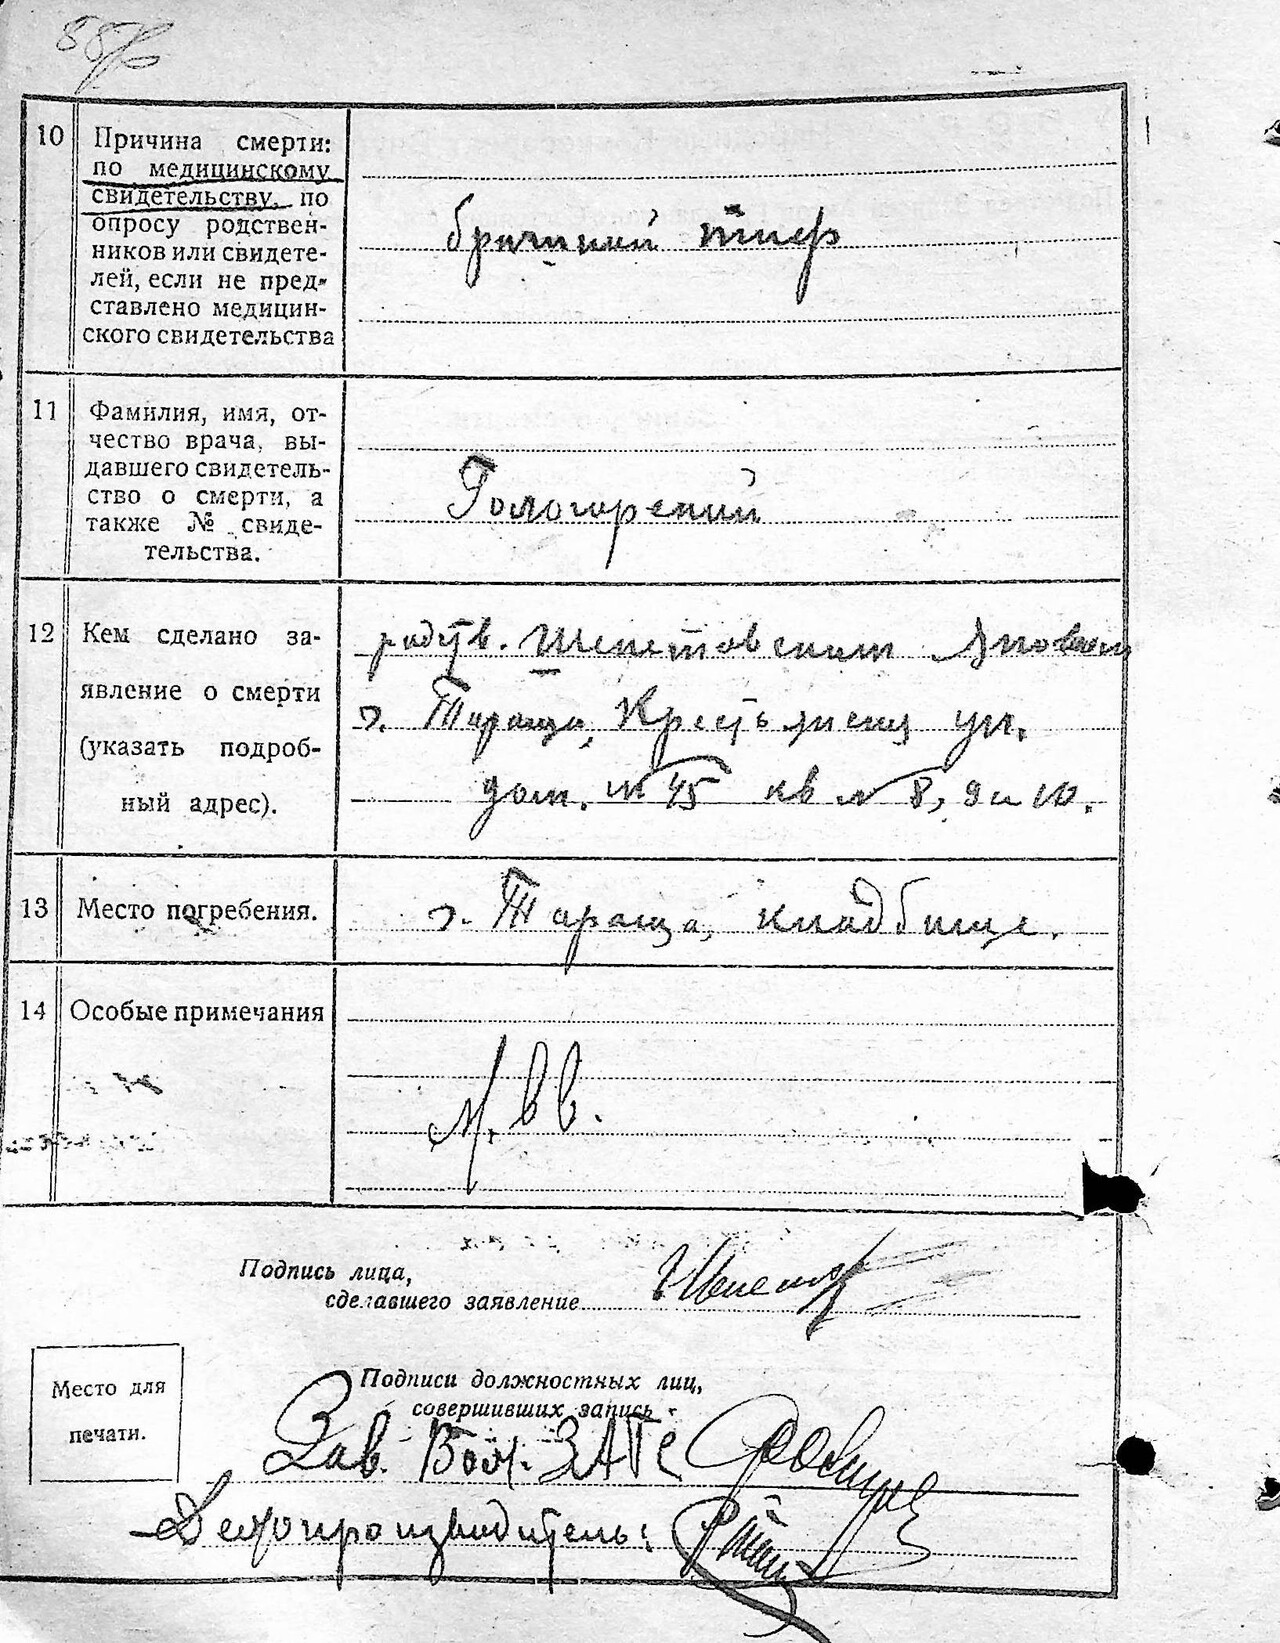 10
Причина смерти:
по медицинскому
свидетельству, по
опросу родствен-
ников или свидете-
лей, если не пред-
ставлено медицин-
ского свидетельства
брюшной тиф
11
Фамилия, имя, от-
чество врача, вы-
давшего свидетель-
ство о смерти, а
также № свиде-
тельства.
12
Кем сделано за-
явление о смерти
(указать подроб-
ный адрес).
родств. Шепетовским
г. Тараща, Крестьянская ул.
дом. № 45 кв № 8, 9 и 10.
13
Место погребения.
г. Тараща, кладбище.
14
Особые примечания
Подпись лица,
сделавшего заявление
Место для
печати.
Подписи должностных лиц,
совершивших запись
Зав. ЗАГС
Делопроизводитель: